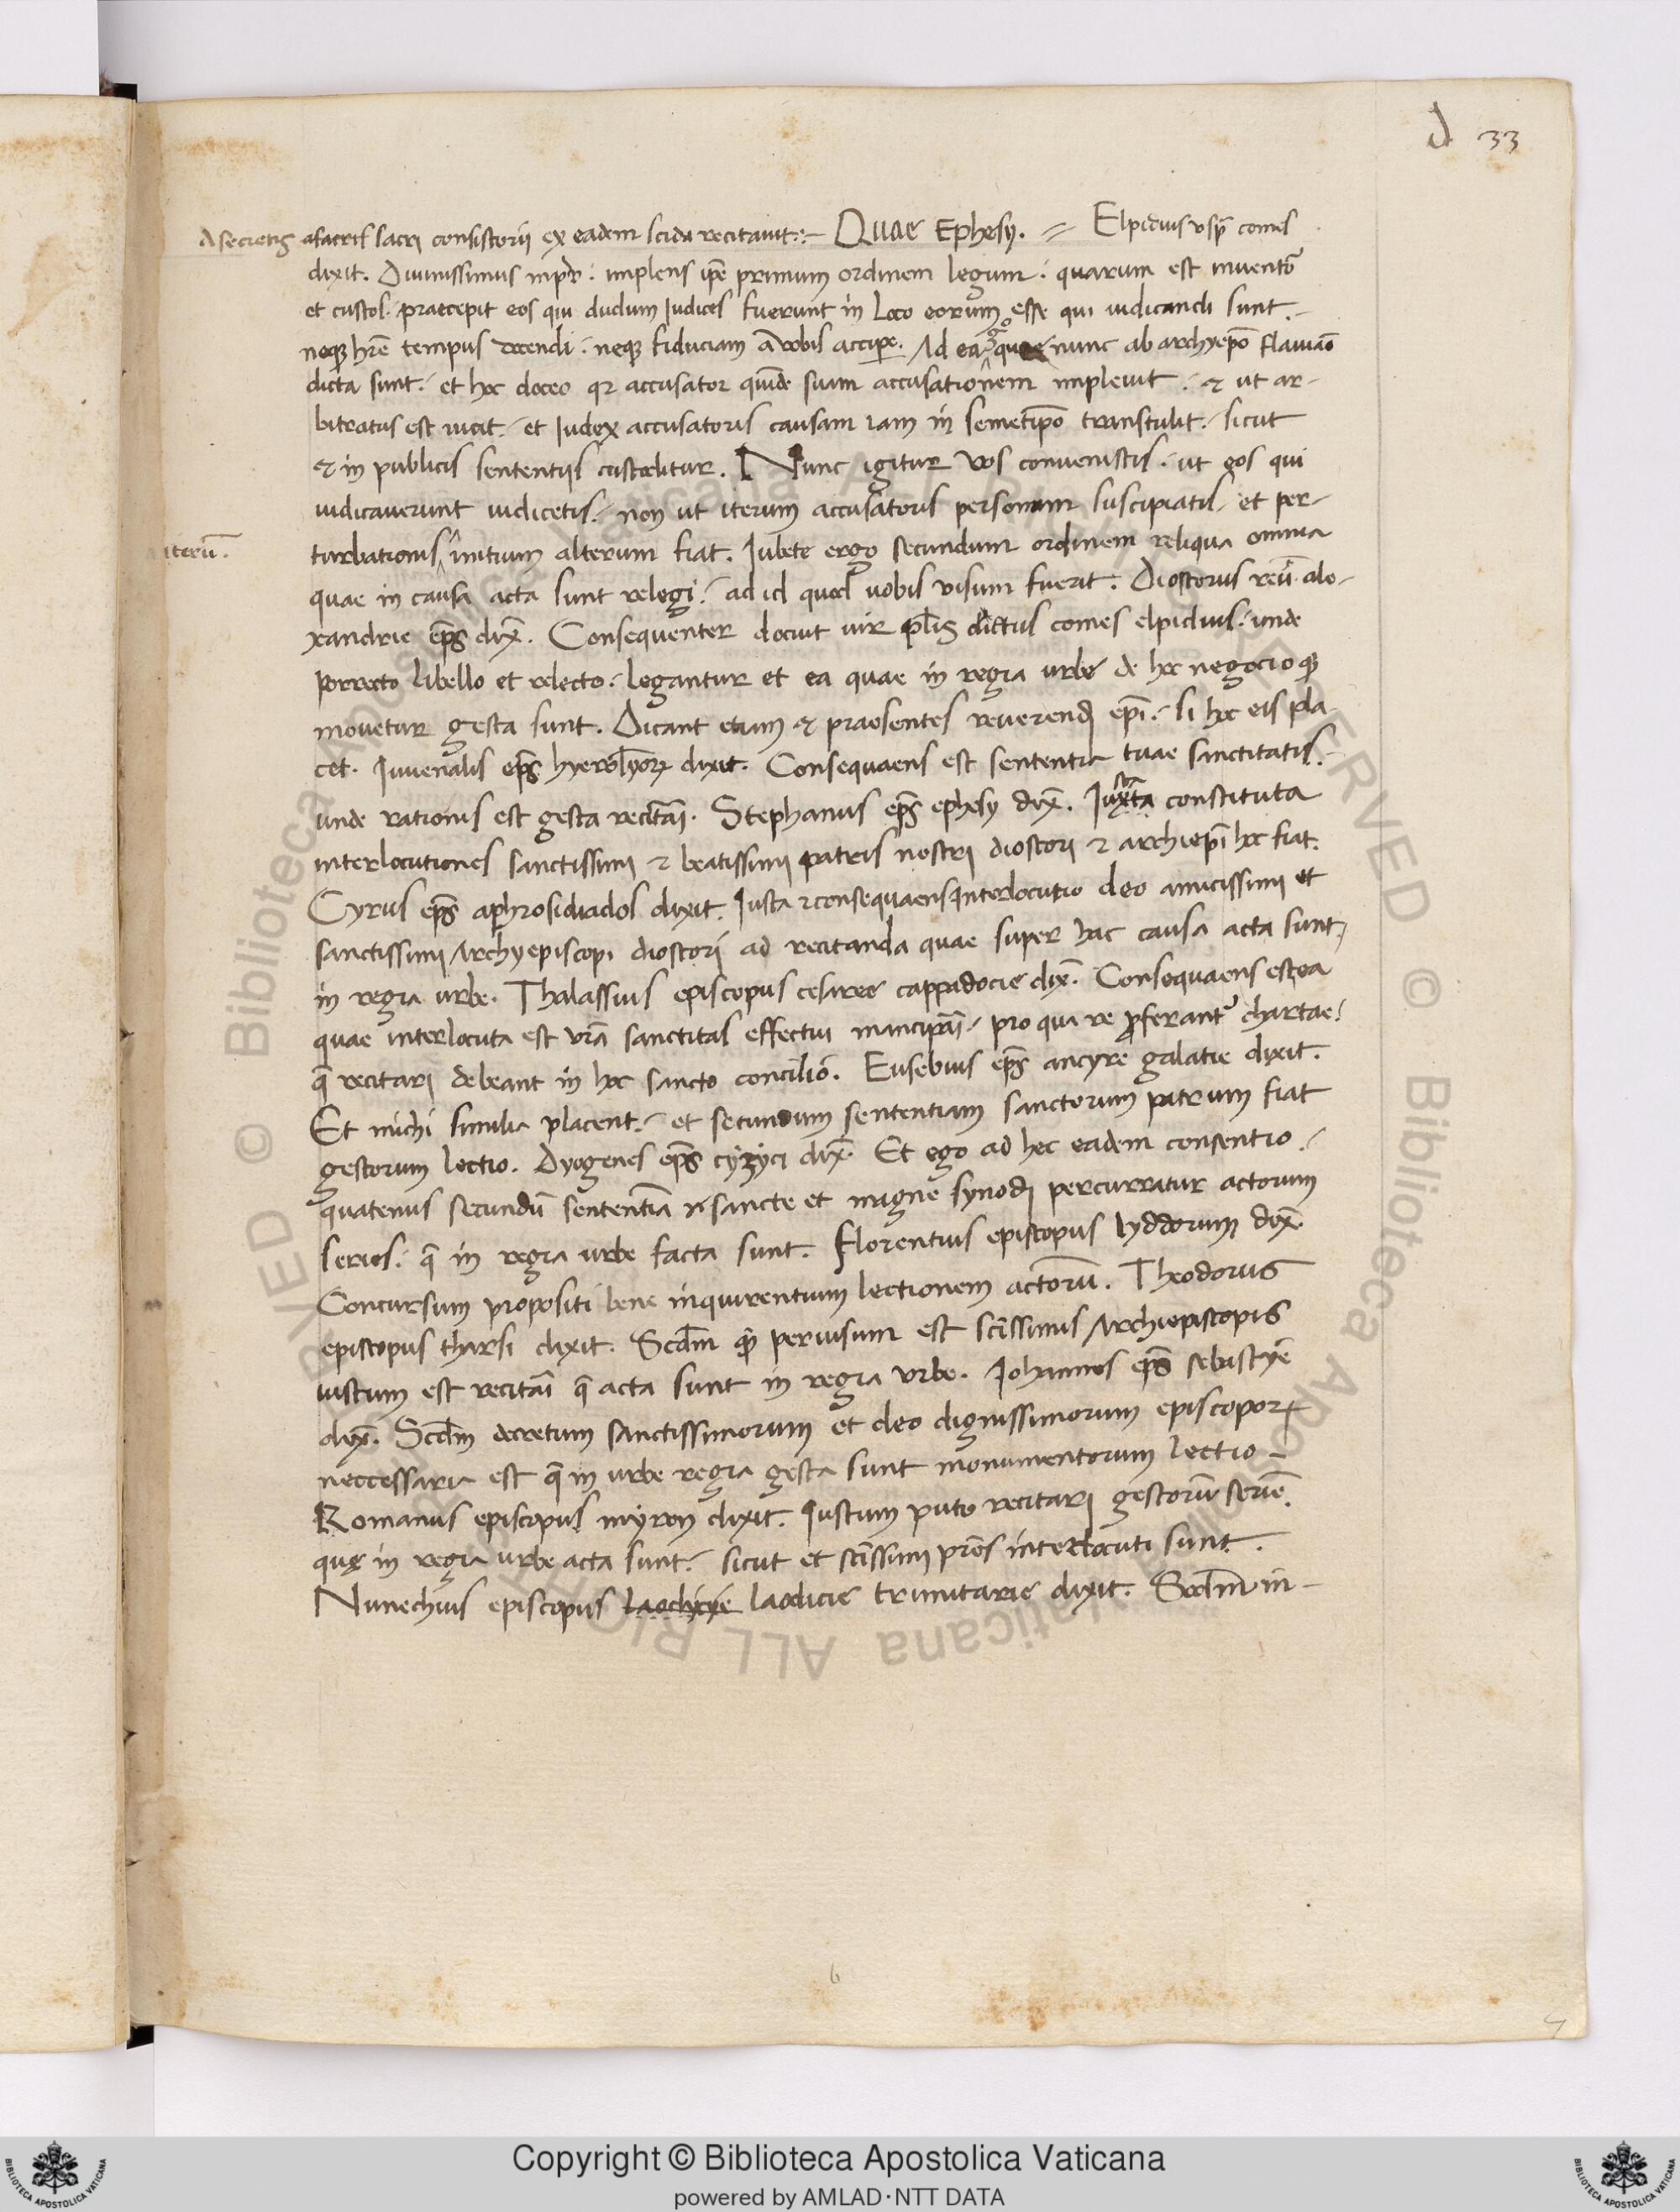 d 33
A secretis
asacris sacri consistorii ex eadem scida recitavit:— Quae Ephesy. = Elpidius vsp̄ comes
dixit. Divinissimus imp̄r. implens ip̄e primum ordinem legum. quarum est inventor̄
et custos. praecepit eos qui dudum Iudices fuerunt in Loco eorum esse qui iudicandi sunt.-
neq; hr̄e tempus docendi. neq; fiduciam A vobis accipe. Ad ea ergo quae nunc ab archyep̄o flaviāo
dicta sunt. et hoc doceo qz accusator quidē suam accusationem implevit. & ut ar-
bitratus est vicit. et Iudex accusatoris causam iam in semetip̄o transtulit. sicut
& in publicis sententiis custoditur. Nunc igitur vos convenistis. ut eos qui
iudicaverunt iudicetis. non ut iterum accusatoris personam suscipiatis. et per-
iterū.
turbationis initium alterum fiat. Iubete ergo secundum ordinem reliqua omnia
quae in causa acta sunt relegi. ad id quod vobis visum fuerit. Dioscorus revē. ale-
xandrie ep̄s dix̄. Consequenter docuit vir dictus comes elpidius. unde
porrecto libello et relecto. Legantur et ea quae in regia urbe de hoc negocio q;
movetur gesta sunt. Dicant etiam & praesentes reverendi ep̄i. si hoc eis pla
cet. Iuvenalis ep̄s hyerosl̄yorz dixit. Consequaens est sententia tuae sanctitatis.-
unde rationis est gesta recitāi. Stephanus ep̄s ephesy dix̄. Iuxta sta constituta
interlocutiones sanctissimi & beatissimi patris nostri dioscori & archiep̄i hoc fiat.
Cyrus ep̄s aphrosidiados dixit. Iusta & consequaens interlocutio deo amicissimi et
sanctissimi Archyepiscopi dioscori ad recitanda quae super hac causa acta sunt
in regia urbe. Thalassius episcopus cesaree cappadocie dix̄. Consequaens est ea
quae interlocuta est vr̄a sanctitas effectui mancipāi. pro qua re p̄ferant' chartae.
q̄ recitari debeant in hoc sancto concilio. Eusebius ep̄s ancyre galatie dixit.
Et michi similia placent. et secundum sententiam sanctorum patrum fiat
gestorum lectio. Dyogenes ep̄s cyzyci dix̄. Et ego ad hec eadem consentio.
quatenus secundū sententiā n̄ sancte et magne synodi percurratur actorum
series. q̄ in regia urbe facta sunt. Florentius episcopus lyddorum dix̄.
Concursum propositi bene inquirentium lectionem actorū. Theodorus
episcopus tharsi dixit. Scdm q̄ pervisum est sc̄issimis Archiepiscopis
iustum est recitāi q̄ acta sunt in regia urbe. Iohannes ep̄s sebastyē
dix̄. Scdm decretum sanctissimorum et deo dignissimorum episcoporz
neccessaria est q̄ in urbe regia gesta sunt monumentorum lectio-
Romanus episcopus myron dixit. Iustum puto recitari gestorum seriē.
quę in regia urbe acta sunt. sicut et sc̄issimi pr̄es interlocuti sunt.
Nunechius episcopus laodycye laodicie trimitarie dixit. Scdm in-
6
Copyright © Biblioteca Apostolica Vaticana
powered by AMLAD·NTT DATA